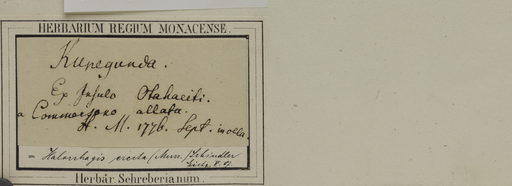 HERBARIUM REGIUM MONACENSE.
Kunegunda.
Ex Insulo Otahaeiti.
a Commersono allata.
H. M. 1776. Sept. in olla.
= Halorrhagis erecta (Murr.) Schindler
Herbar. Schreberianum.